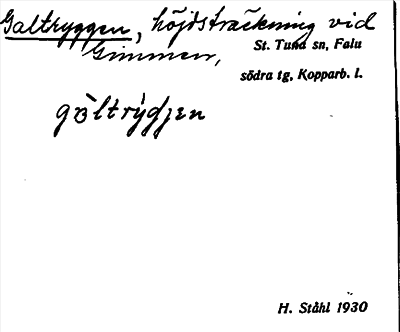 Galtryggen, höjdsträckning vid
Gimmen,
St. Tuna sn, Falu
södra tg, Kopparb. l.
gàltrỳdjen
H. Ståhl 1930